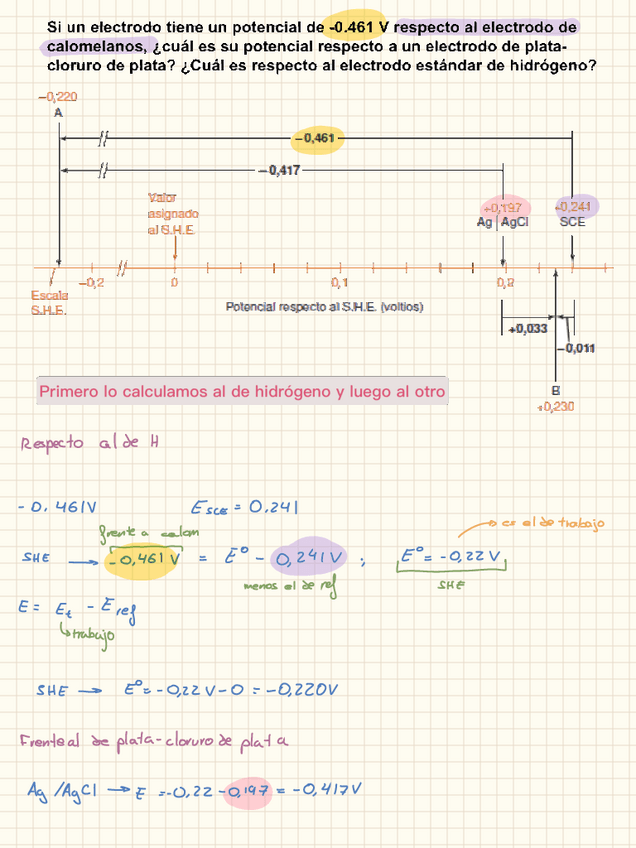 Si un electrodo tiene un potencial de -0.461 V respecto al electrodo de
calomelanos, ¿cuál es su potencial respecto a un electrodo de plata-
cloruro de plata? ¿Cuál es respecto al electrodo estándar de hidrógeno?
−0,220
A
−0,461
−0,417
Valor
asignado
al S.H.E.
+0,197
Ag | AgCl
+0,241
SCE
Escala
S.H.E.
−0,2
0
0,1
0,2
Potencial respecto al S.H.E. (voltios)
+0,033
−0,011
B
+0,230
Primero lo calculamos al de hidrógeno y luego al otro
Respecto al de H
-0.461V Esce = 0,241
frente a calom
es el de trabajo
SHE → -0,461 V = E° - 0,241 V ; E° = -0,22 V
menos el de ref
SHE
E = Et - Eref
trabajo
SHE → E° = -0,22 V - 0 = -0,220V
Frente al de plata-cloruro de plata
Ag /AgCl → E = -0,22 - 0,197 = -0,417V